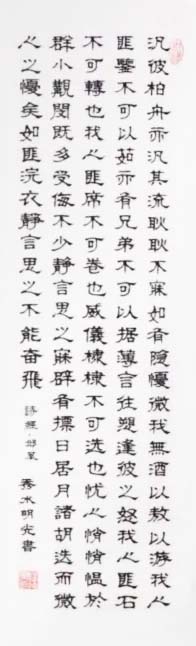 汎彼柏舟亦汎其流耿耿不寐如有隱憂微我無酒以敖以游我心
匪鑒不可以茹亦有兄弟不可以据薄言往愬逢彼之怒我心匪石
不可轉也我心匪席不可卷也威儀棣棣不可選也忧心悄悄慍於
群小覯閔既多受侮不少靜言思之寤辟有摽日居月諸胡迭而微
心之憂矣如匪浣衣靜言思之不能奮飛
詩經邶風
秀水明光書